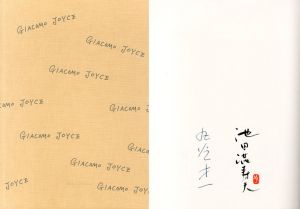 GIACOMO JOYCE
GIACOMO JOYCE
GIACOMO JOYCE
GIACOMO JOYCE
GIACOMO JOYCE
GIACOMO JO
GIACOMO JOYCE
GIACOMO JOYCE
JOYCE
GIACOMO JOYCE
池田満寿夫
丸谷才一